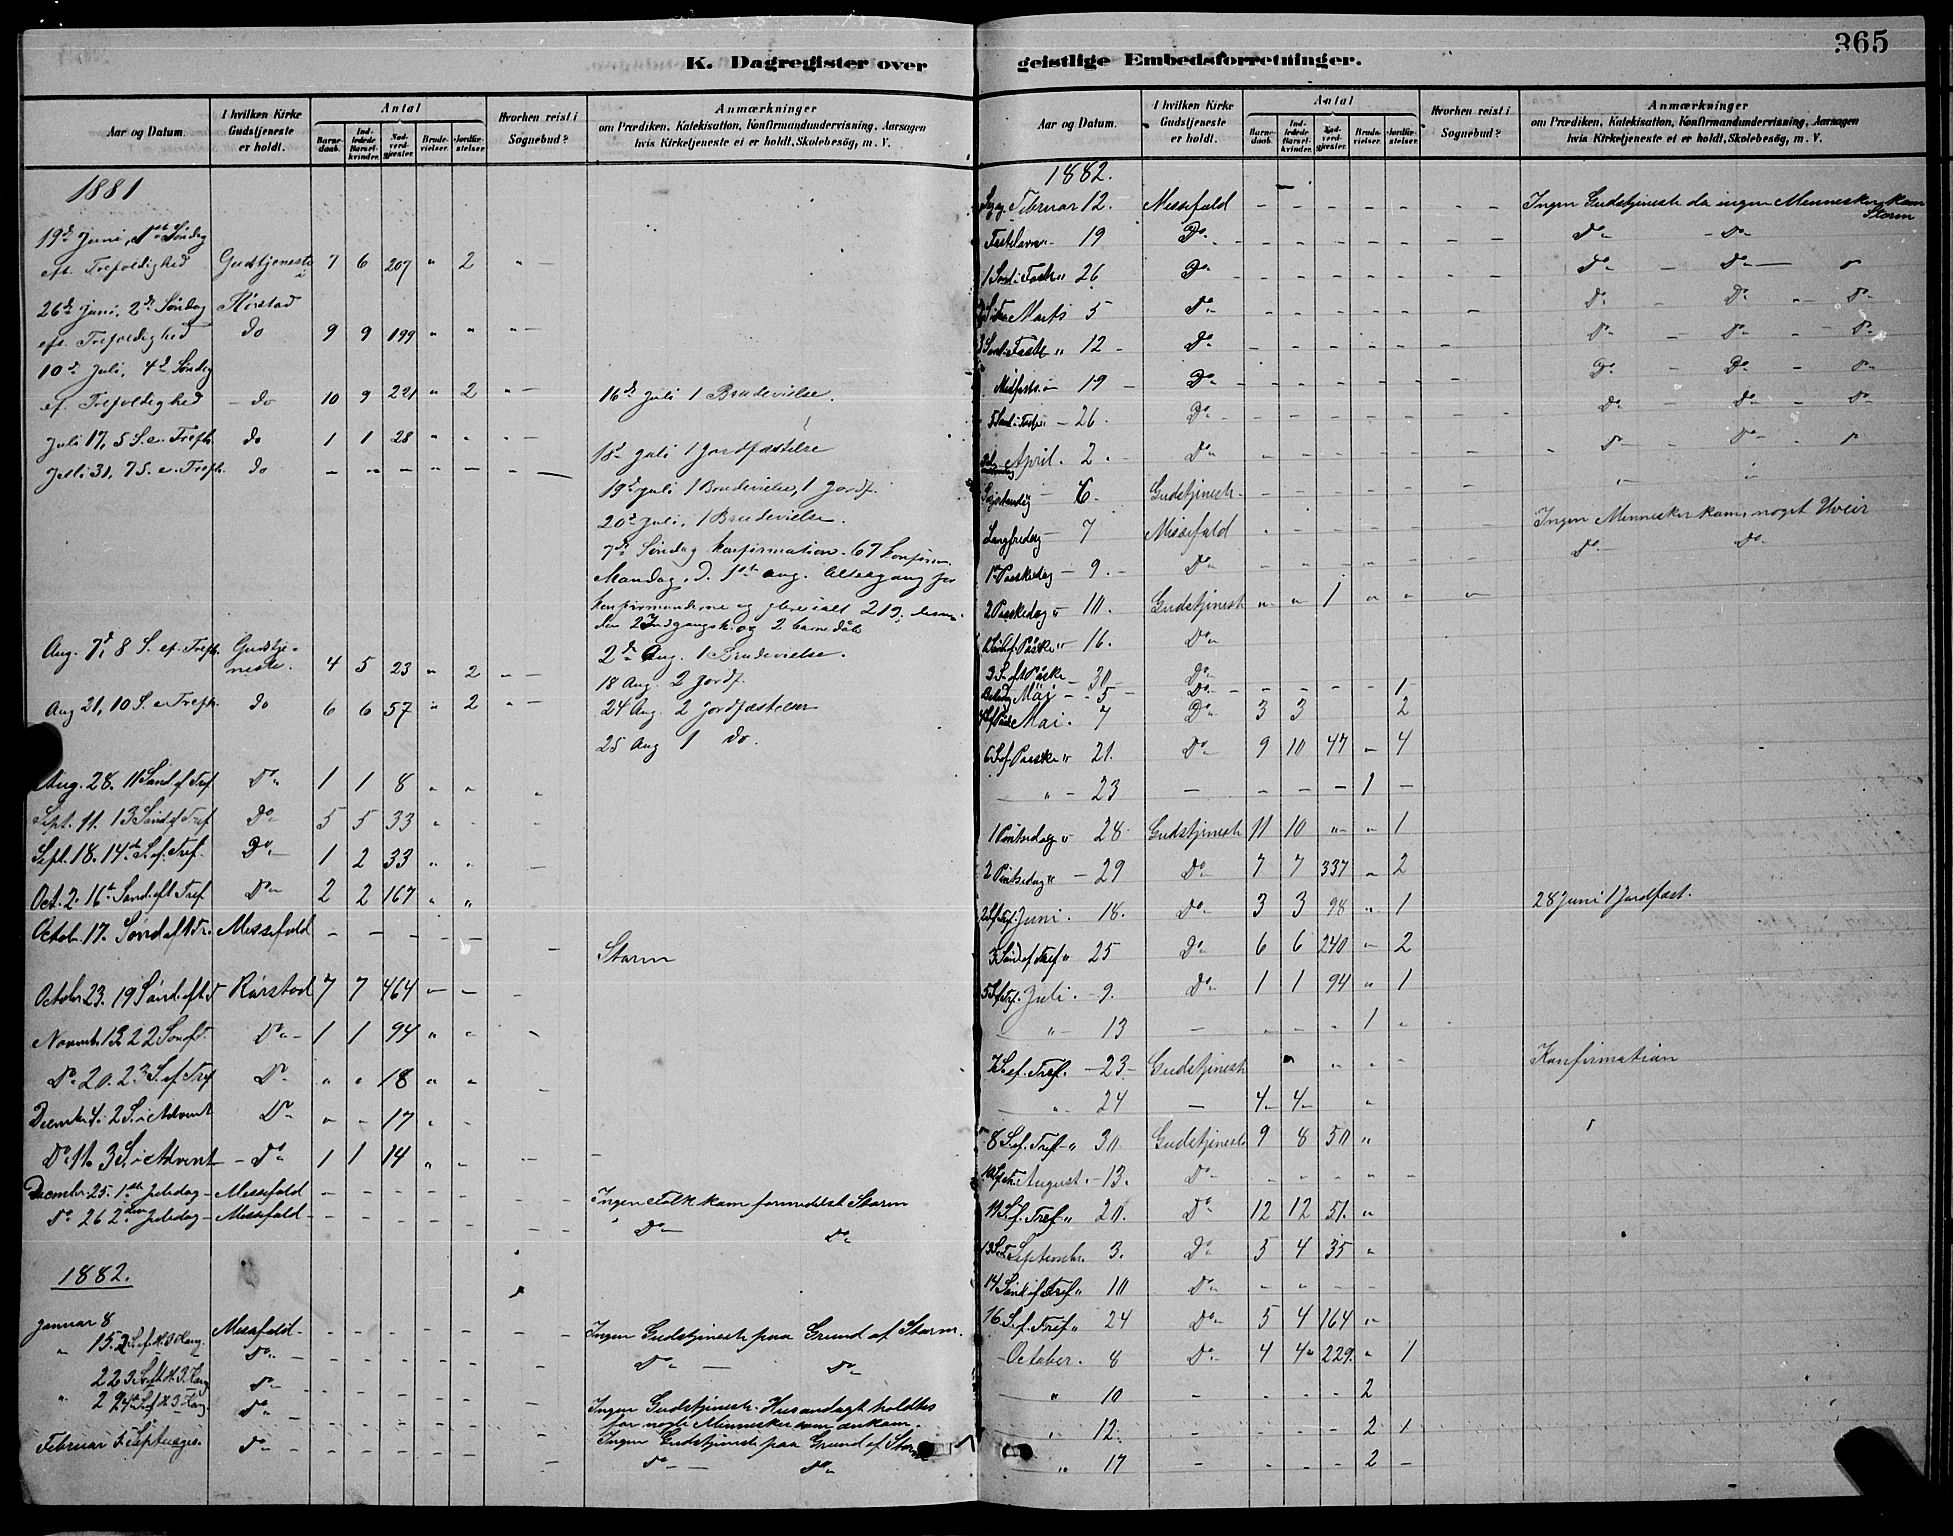 365
K. Dagregister over
geistlige Embedsforretninger.
Aar og Datum.
I hvilken Kirke Gudstjeneste er holdt.
Antal
Barne-daab.
Ind-ledede Barsel-kvinder.
Nad-verd-gjester.
Brude-vielser.
Jordfæ-stelser.
Hvorhen reist i Sognebud?
Anmærkninger
om Prædiken, Katekisation, Konfirmandundervisning, Aarsagen
hvis Kirketjeneste ei er holdt, Skolebesög, m. V.
1881
19de Juni, 1ste Søndag
eft. Trefoldighed Gudstjeneste i 7 6 207 " 2 " —
26de Juni, 2de Søndag Rørstad
eft. Trefoldighed do 9 9 199 " " " —
10de Juli, 4de Søndag
ef. Trefoldighed - do 10 9 221 " 2 " — 16de Juli 1 Brudevielse.
Juli 17, 5 S. e. Trefh. do 1 1 28 " " " —
18de Juli 1 Jordfæstelse
Juli 31, 7 S. e. Trefh. do — — — — — " —
19de Juli 1 Brudevielse, 1 Jordf.
20de Juli, 1 Brudevielse.
7de Søndag Konfirmation. 67 Konfirm.
Mandag d. 1ste Aug. Altergang for
Konfirmanderne og flere ialt 213.
2 Indgangsk. og 2 barnedåb
Aug. 7de, 8 S. ef. Trefh. Gudstje-neste. 4 5 23 " 2 " — 2de Aug. 1 Brudevielse.
18 Aug. 2 Jordf.
Aug 21, 10 S. e Trefh. do 6 6 57 " 2 " — 24 Aug. 2 Jordfæstelser
25 Aug 1 do.
Aug. 28. 11 Sønd ef Tref Do 1 1 8 " " "
Sept. 11. 13 Sønd ef Tref Do 5 5 33 " - -
Sept. 18. 14de S. ef. Tref. Do 1 2 33 " " -
Oct. 2. 16de Sønd. eft Tref Do 2 2 167 " "
Octob. 17. Sønd eft Tr. Messefald - - - - - - Storm
October 23. 19 Sønd. eft T Rørstad 7 7 464 — — -
Novemb. 13 22 Søn eft. Do 1 1 94 " " -
Do 20. 23 S. ef Tref Do " " 18 " " -
Decemb. 4. 2 S. i Advent Do " " 17 " -
Do 11. 3 S. i Advent - Do 1 1 14 " " - -
December 25. 1ste Juledag - Messefald - - - - - - Ingen Folk kom formedelst Storm
Do 26 2den Juledag - Messefald - - - - - - Do Do
1882.
Januar 8 Messefald - - - - - - - Ingen Gudstjeneste paa Grund af Storm.
" 15. 2 S. ef. H. 3 Kong. Do - - - - - - Do — Do
22 3 S. eft H. 3 Kong Do - - - - - -
" 29 4de S. ef H. 3 Kong. Do - - - - - - Ingen Gudstjeneste. Husandagt holdtes
for nogle Mennesker som ankom.
Februar 5 Septuages. Do - - - - - - Ingen Gudstjeneste paa Grund af Storm
Do — Do
Aar og Datum.
I hvilken Kirke Gudstjeneste er holdt.
Antal
Barne-daab.
Ind-ledede Barsel-kvinder.
Nad-verd-gjester.
Brude-vielser.
Jordfæ-stelser.
Hvorhen reist i Sognebud?
Anmærkninger
om Prædiken, Katekisation, Konfirmandundervisning, Aarsagen
hvis Kirketjeneste ei er holdt, Skolebesög, m. V.
1882.
Februar 12. Messefald - - - - - - - Ingen Gudstjeneste da ingen Mennesker kom
Storm
Fastelavns - 19 Do - - - - - - - Do - Do
1 Sønd. i Faste " 26 Do - - - - - - - Do - Do — Do
Marts 5 Do - - - - - - Do - Do - Do
3 Sønd. i Faste " 12 - Do - - - - - - Do - Do - Do
Midfaste - 19 - Do - - - - - - Do - Do - Do
5 Sønd. i Faste " - 26. Do - - - - - - - Do - Do - Do
April. 2. - Do - - - - - - Do - Do - Do
Skjærtorsdag - 6. Gudstjeneste - - - - - - " "
Langfredag - 7 Messefald - - - - - - Ingen Mennesker kom, noget Uveir
1ste Paaskedag - 9. - Do - - - - - - Do Do
2 Paaskedag " 10. Gudstjeneste " " 1 " " "
Paaske " 16. Do
S. eft Påske - 30 - Do
Bededag Maj - 5 - Do - - - - - 1
Mai. 7 Do 3 3 2
6 S. ef Paaske " 21. Do 9 10 47 " 4
" - 23 — - - - 1 -
1 Pintsedag " 28. Gudstjeneste 11 10 " " 1
2 Pintsedag " - 29 Do 7 7 337 " 2
Juni. 18. Do 3 3 98 " 1 28 Juni 1 Jordfæst.
3 Sønd ef Tref " 25 Do 6 6 240 " 2
5 S. ef Tref. Juli. - 9. Do 1 1 94 " 1
" - 13 — - - - 1 -
7 S. ef. Tref. - 23 - Gudstjeneste " " - Konfirmation
" 24 — 4 4 "
8 S. ef. Tref " 30. Gudstjeneste 9 8 50 "
August. - 13. Do - " " " -
11 S. f. Tref " 20. Do 12 12 51. "
September 3. Do 5 4 35 "
14 Sønd. ef Tref " 10 Do - " - -
16 S. f. Tref " 24 Do 5 4 164 "
October. 8 Do 4 4 229. " 1
" 10 - - - - 2
" 12. - - - - 2 1
" 17 - - - - 2 -